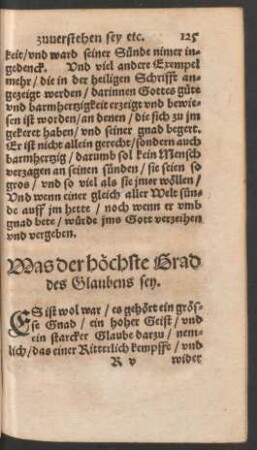 zuuerstehen sey etc. 125
keit/vnd ward seiner Sünde nimer in-
gedenck. Vnd viel andere Exempel
mehr/die in der heiligen Schrifft an-
gezeigt werden/darinnen Gottes güte
vnd barmhertzigkeit erzeigt vnd bewie-
sen ist worden/an denen/die sich zu jm
gekeret haben/vnd seiner gnad begert.
Er ist nicht allein gerecht/sondern auch
barmhertzig/darumb sol kein Mensch
verzagen an seinen sünden/sie seien so
gros/vnd so viel als sie jmer wöllen/
Vnd wenn einer gleich aller Welt sün-
de auff jm hette/noch wenn er vmb
gnad bete/würde jms Gott verzeihen
vnd vergeben.
Was der höchste Grad
des Glaubens sey.
ES ist wol war/es gehört ein grös-
se Gnad/ein hoher Geist/vnd
ein starcker Glaube darzu/nem-
lich/das einer Ritterlich kempffe/vnd
R v wider